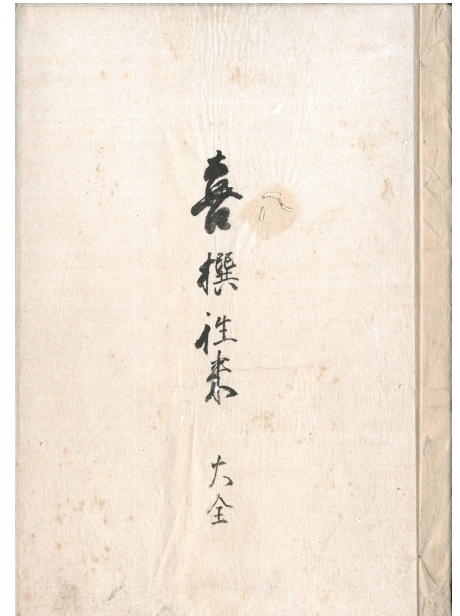 喜撰徃来 大全